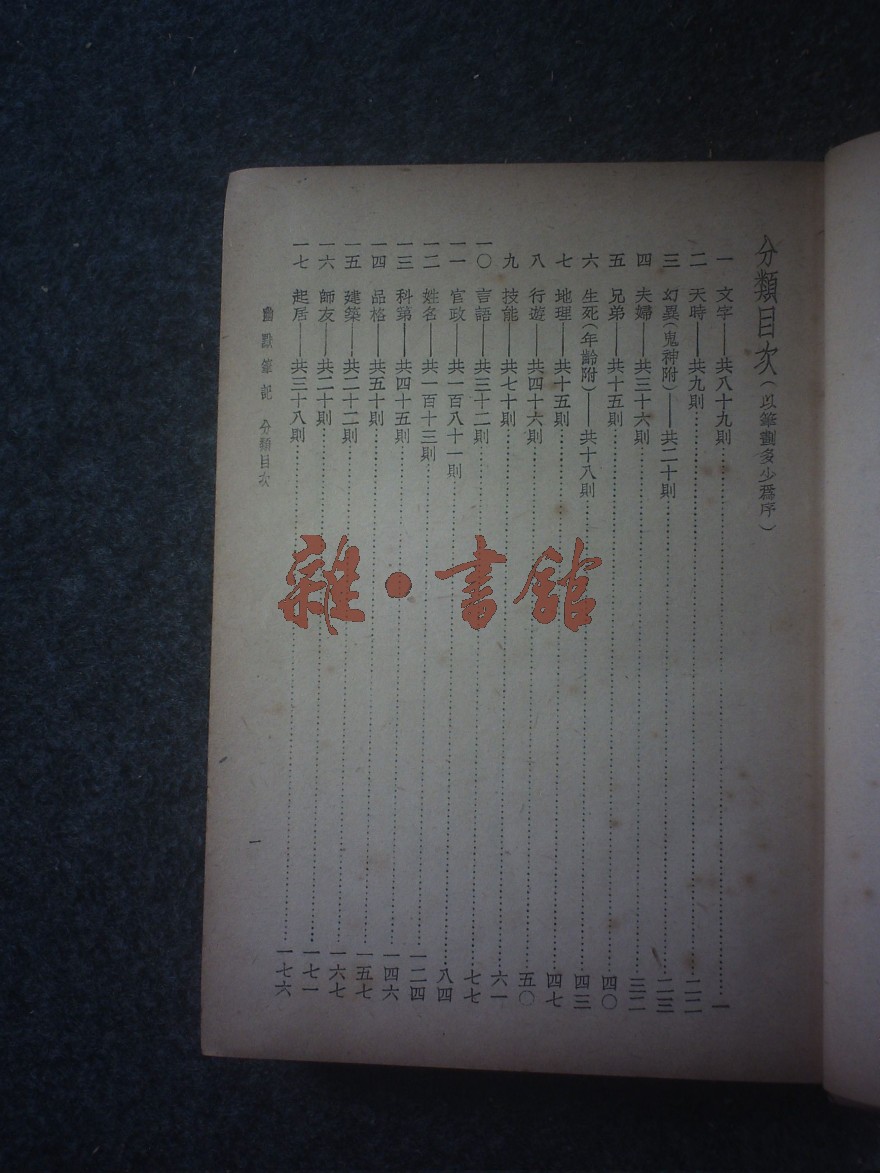 分類目次（以筆劃多少爲序）
一　文字——共八十九則……一
二　天時——共九則……二二
三　幻異（鬼神附）——共二十則……二三
四　夫婦——共三十六則……三二
五　兄弟——共十五則……四〇
六　生死（年齡附）——共十八則……四三
七　地理——共十五則……四七
八　行遊——共四十六則……五〇
九　技能——共七十則……六一
一〇　言語——共三十二則……七七
一一　官政——共一百八十一則……八四
一二　姓名——共一百十三則……一二四
一三　科第——共四十五則……一四六
一四　品格——共五十則……一五七
一五　建築——共二十二則……一六七
一六　師友——共二十則……一七一
一七　起居——共三十八則……一七六
幽默筆記　分類目次　一
雜·書館